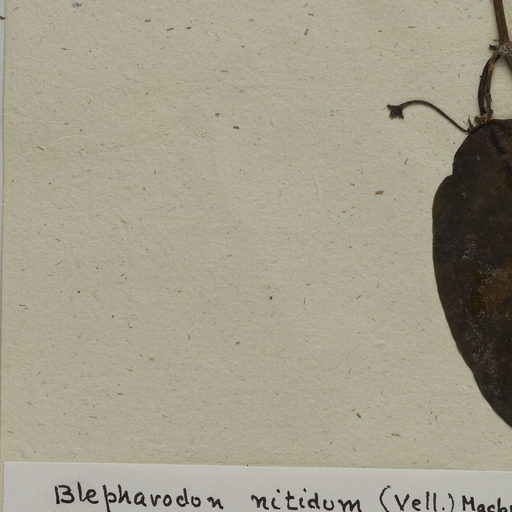 Blepharodon nitidum (Vell.) Macbr